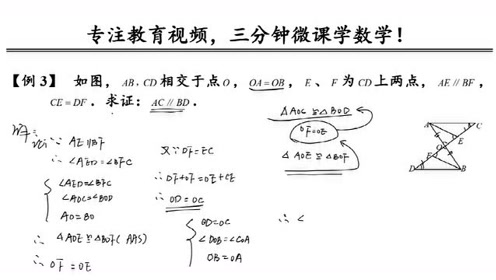 专注教育视频，三分钟微课学数学！
【例 3】 如图， AB , CD 相交于点 O ， OA = OB ， E 、 F 为 CD 上两点， AE ∥ BF ，
CE = DF . 求证： AC ∥ BD .
△AOC ≌ △BOD
OF=OE
△AOE ≌ △BOF
∵ AE∥BF
∴ ∠AED=∠BFC
∠AED=∠BFC
∠AOC=∠BOD
AO=BO
∴ △AOE ≌ △BOF (AAS)
∴ OF=OE
又∵ DF=EC
∴ DF+OF=OE+CE
∴ OD=OC
OD=OC
∠DOB=∠COA
OB=OA
∴ ∠
A
C
E
O
F
D
B